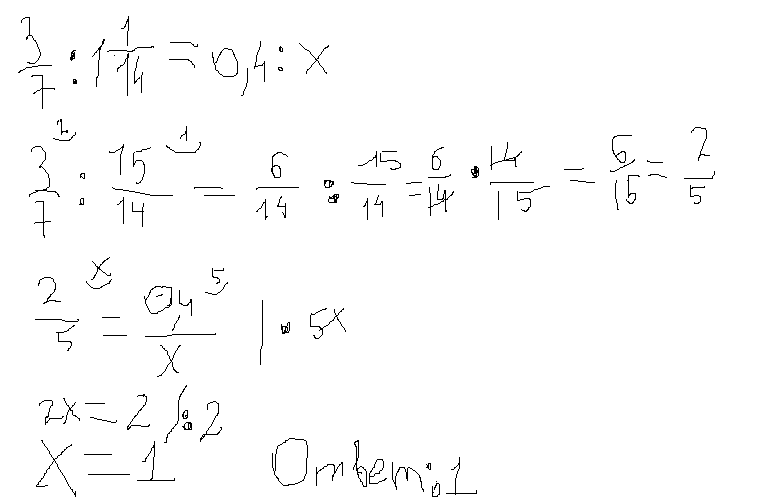 3/7 : 1 1/14 = 0,4 : x
3/7 ² : 15/14 ¹ = 6/14 : 15/14 = 6/14 · 14/15 = 6/15 = 2/5
2/5 ˣ = 0,4/x ⁵ | · 5x
2x = 2 / : 2
x = 1 Ответ: 1